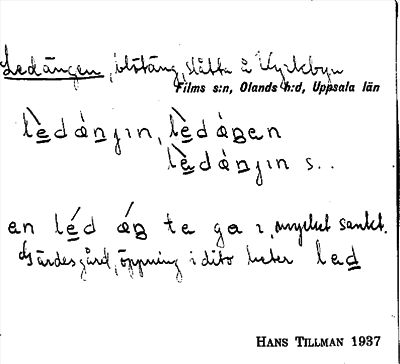 Ledängen, blötäng, slätta å Kyrkbyn
Films s:n, Olands h:d, Uppsala län
lèdáŋın, lèdáŋen
lèdáŋın s..
an léd áŋ te ga ı, mycket sankt.
Gärdesgård, öppning i dito heter led
HANS TILLMAN 1937